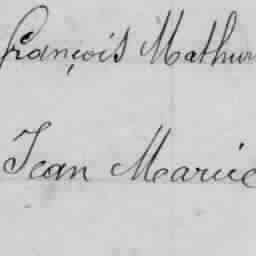 François Mathur
Jean Marie